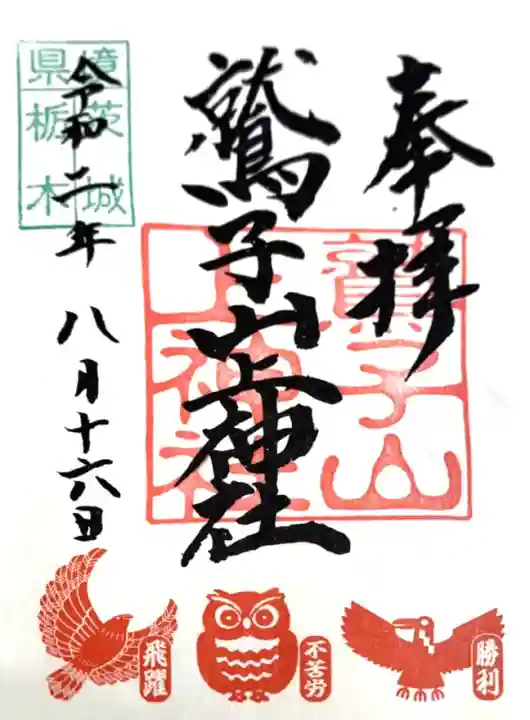 奉拝
鷲子山上神社
鷲子山
上神社
令和二年
八月十六日
境茨城
県栃木
飛躍
不苦労
勝利